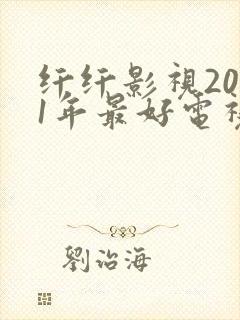 纤纤影視20
1年最好電
劉治海